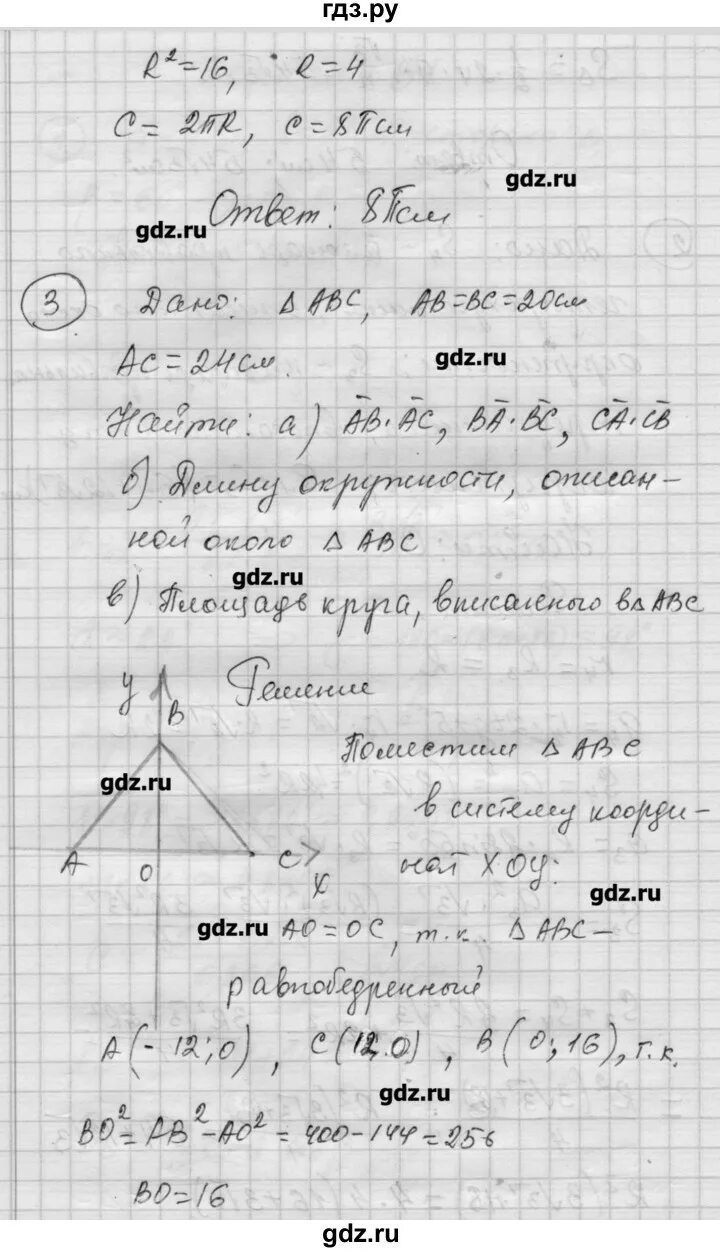 гдз.ру
R²=16, R=4
C=2πR, C=8πсм
gdz.ru
Ответ: 8πсм
gdz.ru
3 Дано: Δ ABC, AB=BC=20см
AC=24см.
gdz.ru
Найти: а) AB·AC, BA·BC, CA·CB
б) Длину окружности, описан-
ной около Δ ABC
gdz.ru
в) Площадь круга, вписанного в Δ ABC
y
Решение
B
Поместим Δ ABC
gdz.ru
в систему коорди-
A O C X
нат XOY:
gdz.ru
gdz.ru
AO=OC, т.к. Δ ABC –
равнобедренный
A(-12;0), C(12;0), B(0;16), т.к.
gdz.ru
BO²=AB²-AO²=400-144=256
BO=16
gdz.ru